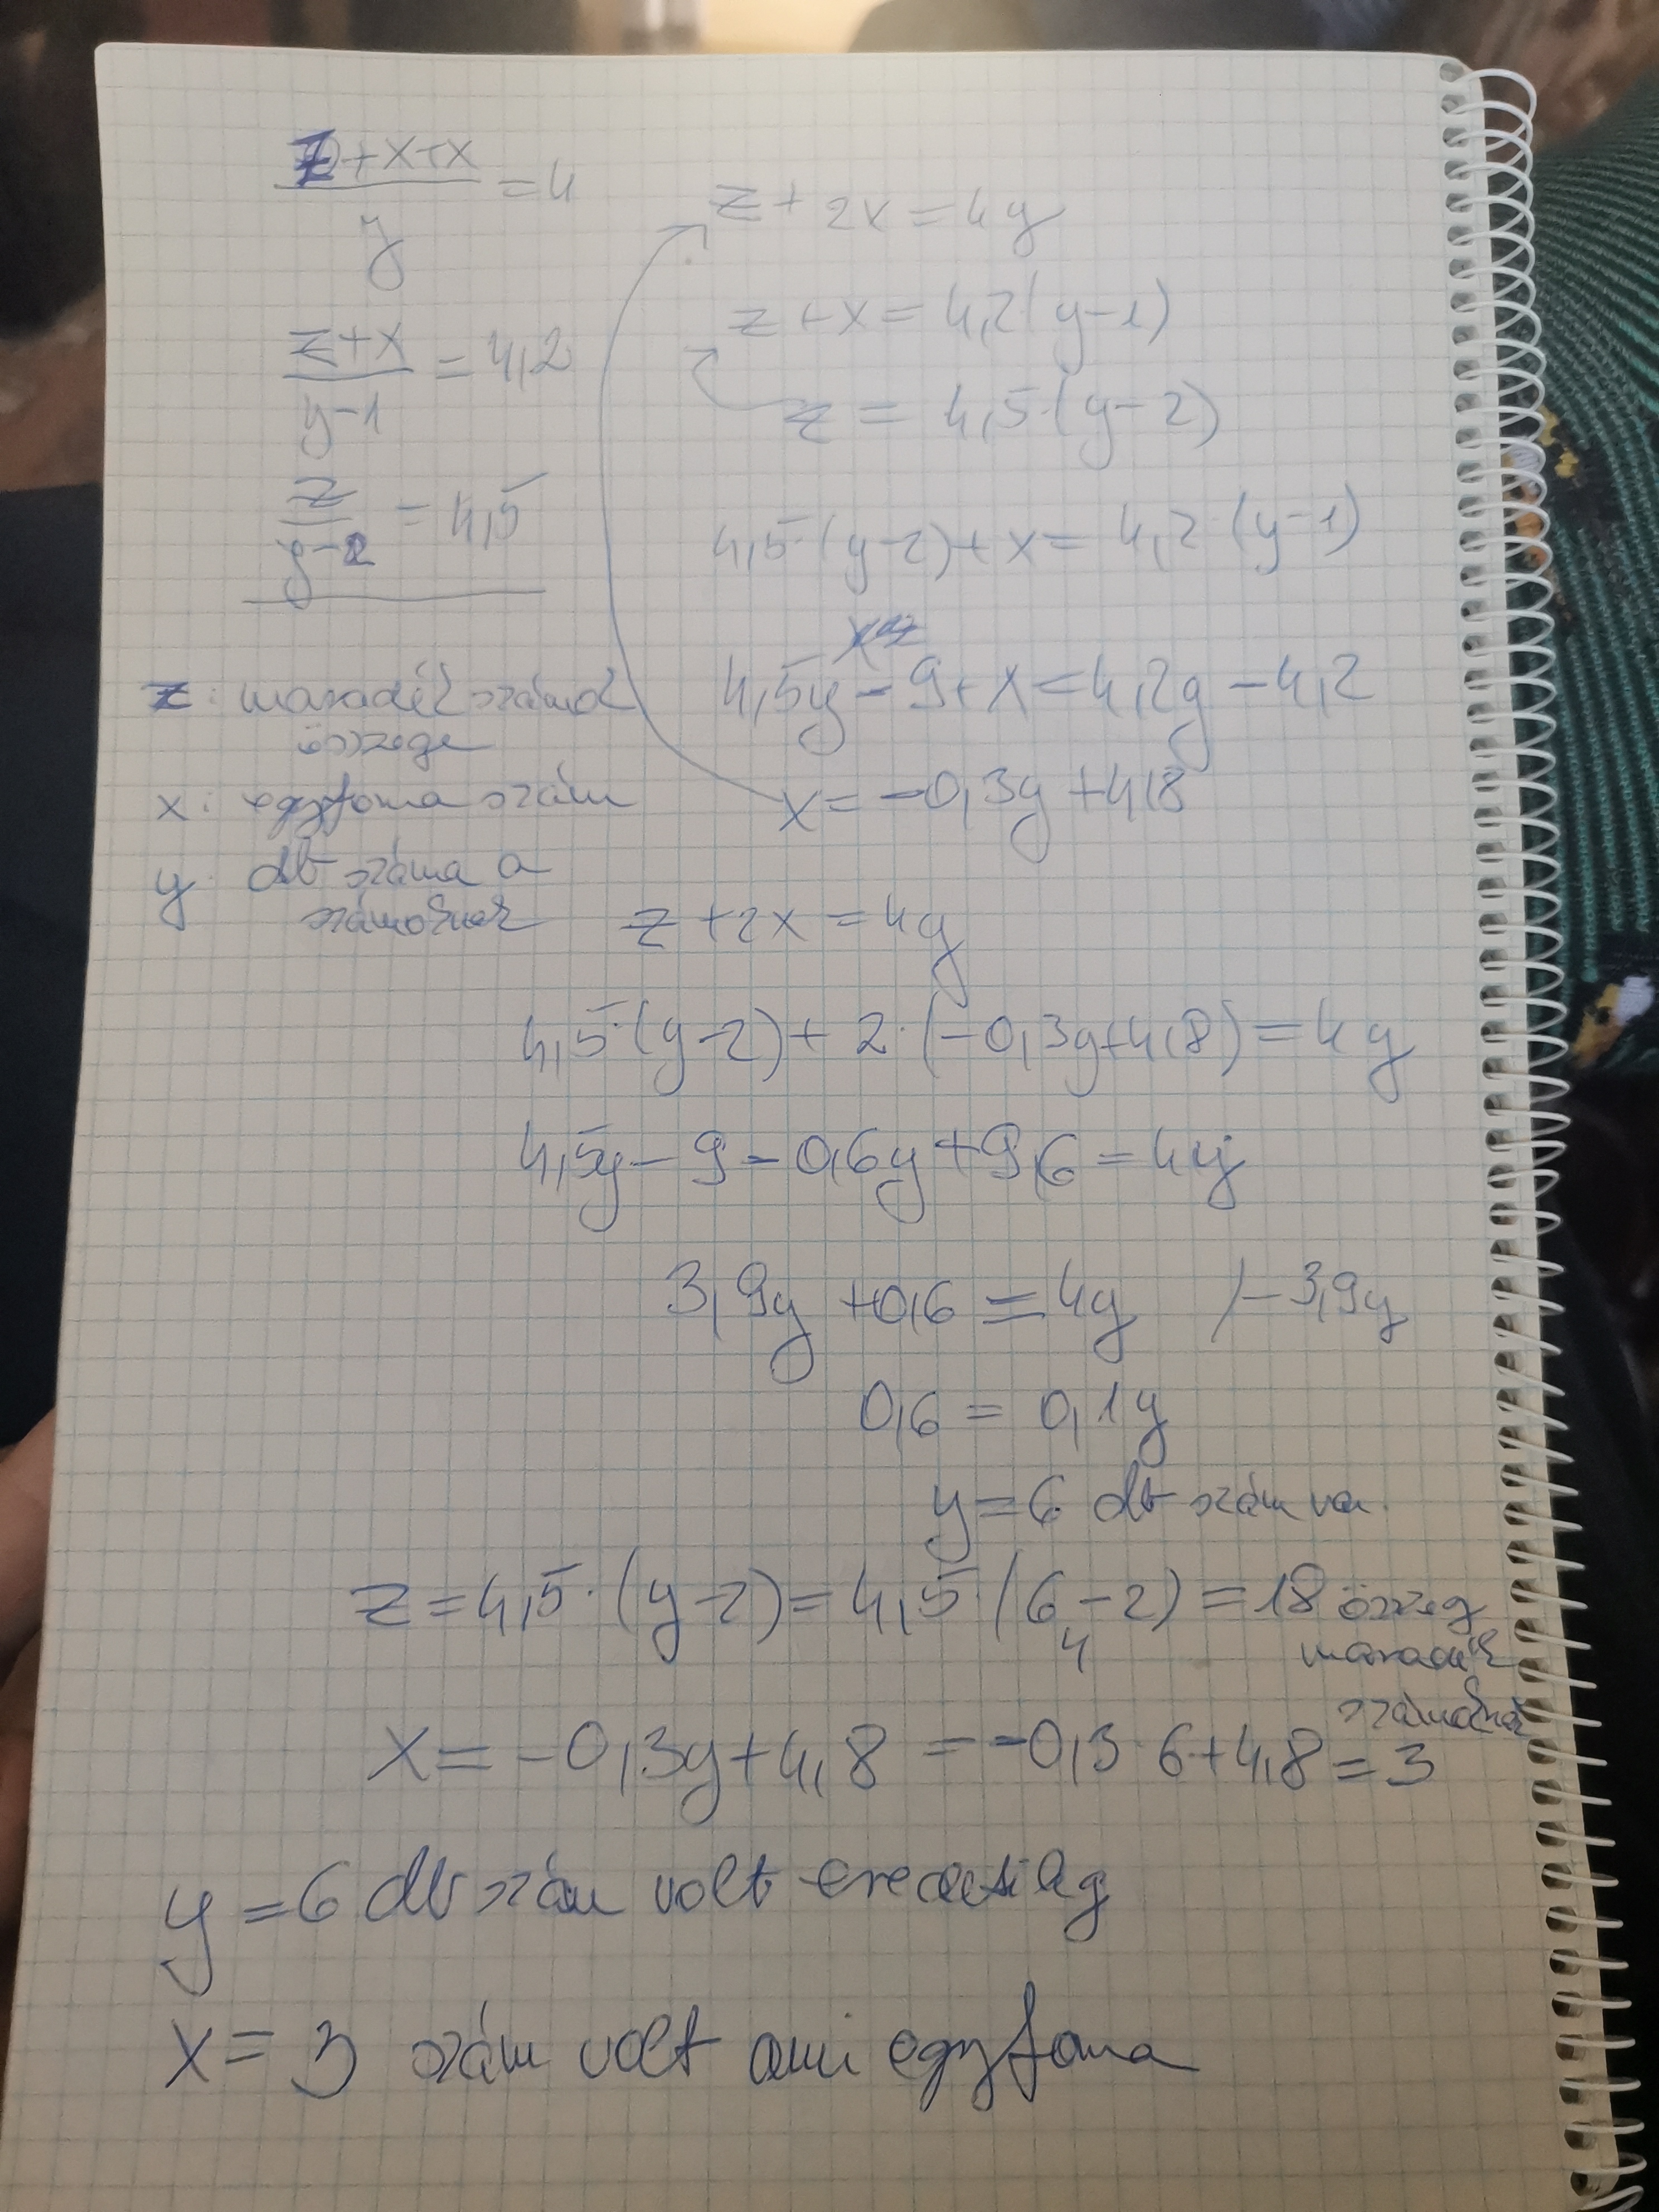 z+x+x / y = 4
z+x / y-1 = 4,2
z / y-2 = 4,5
z: maradék számok
összege
x: egyforma szám
y: db száma a
számoknak
z+2x=4y
z+x=4,2(y-1)
z=4,5·(y-2)
4,5·(y-2)+x=4,2·(y-1)
4,5y-9+x=4,2y-4,2
x=-0,3y+4,8
z+2x=4y
4,5·(y-2)+2·(-0,3y+4,8)=4y
4,5y-9-0,6y+9,6=4y
3,9y+0,6=4y /-3,9y
0,6=0,1y
y=6 db szám van.
z=4,5·(y-2)=4,5·(6-2)=18 összeg
4 maradék
számoknak
x=-0,3y+4,8=-0,3·6+4,8=3
y=6 db szám volt eredetileg
x=3 szám volt ami egyforma